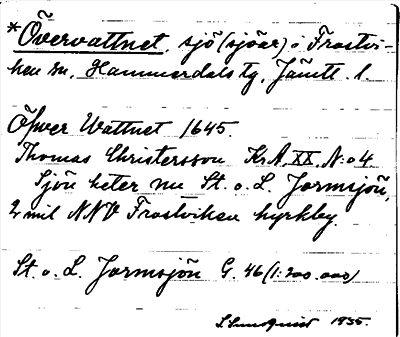 *Övervattnet, sjö (sjöar) i Frostvi-
ken sn, Hammerdals tg, Jämtl. l.
Öfwer Wattnet 1645.
Thomas Christersson KrA, XX, N:o 4
Sjön heter nu St. o. L. Jormsjön,
2 mil NNV Frostviken kyrkby.
St. o. L. Jormsjön G. 46 (1:200.000)
1935.